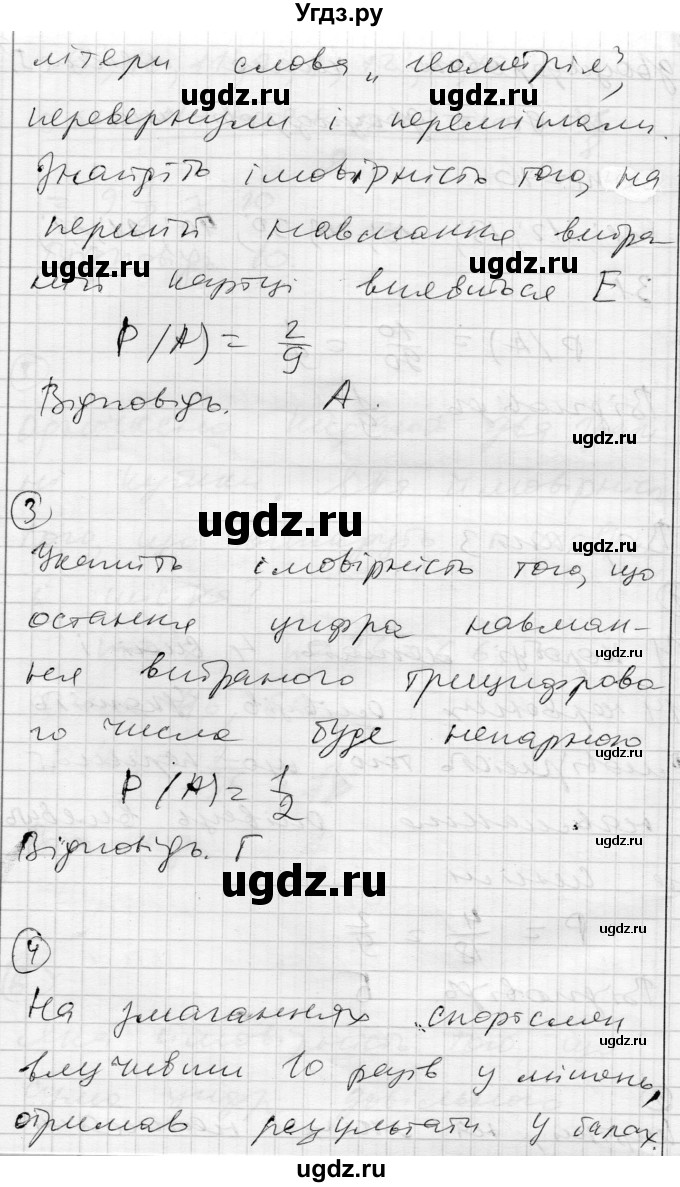 Угдз.ру
літери слова „Геометрія",
ugdz.ru ugdz.ru
перевернули і перемішали.
Знайдіть імовірність того, на
першій навмання вибра
ugdz.ru ugdz.ru
ній картці виявиться Е
P(A) = 2/9
Відповідь. А.
ugdz.ru
3
ugdz.ru
ugdz.ru
Укажіть імовірність того, що
остання цифра навман-
ugdz.ru
ня вибраного трицифрово
го числа буде непарною
ugdz.ru
P(A) = 1/2
ugdz.ru
Відповідь. Г
ugdz.ru
ugdz.ru
4
ugdz.ru
На змаганнях спортсмен
влучивши 10 разів у мішень,
ugdz.ru
отримав результати у балах.
ugdz.ru